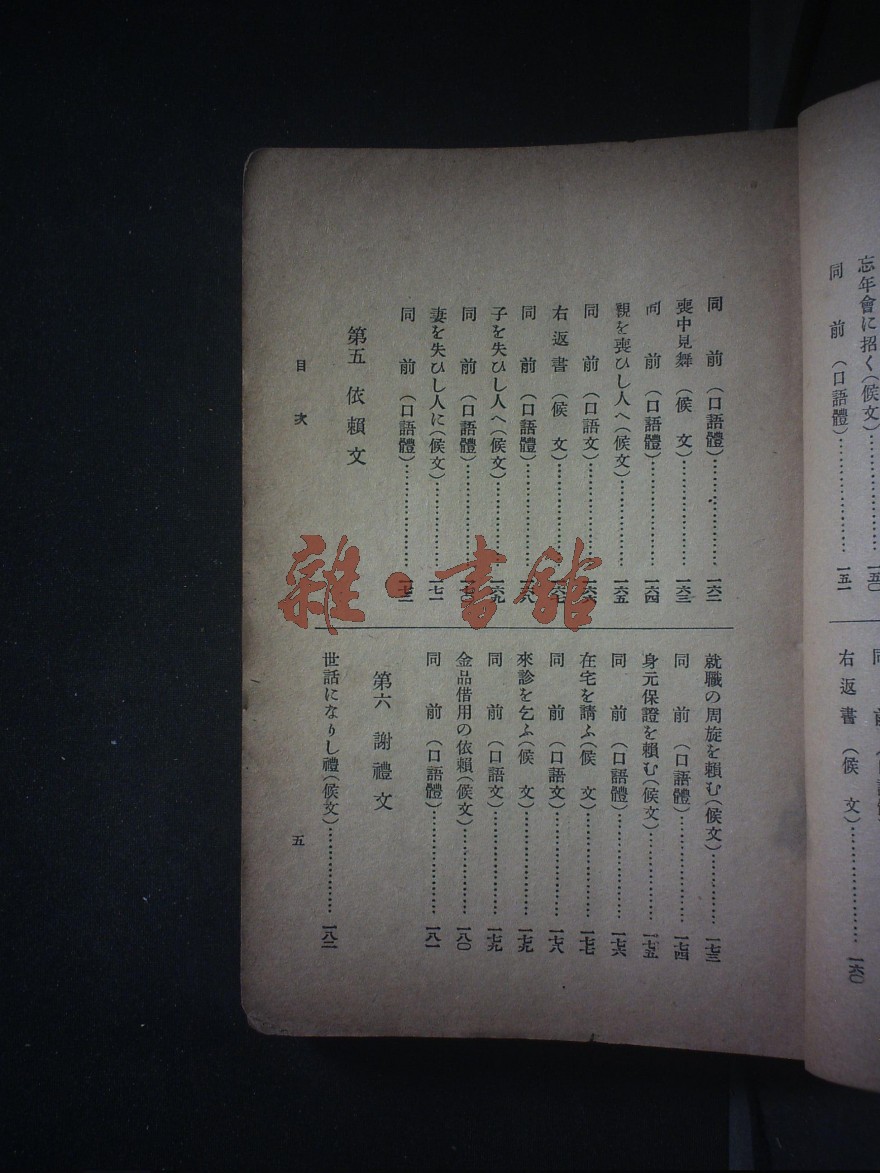 忘年會に招く(候文)……………一五〇
同前(口語體)……………一五一
右返書(候文)……………一六〇
同前(口語體)……………一六二
喪中見舞(候文)……………一六三
同前(口語體)……………一六四
親を喪ひし人へ(候文)……………一六五
同前(口語文)……………
右返書(候文)……………
同前(口語體)……………
子を失ひし人へ(候文)……………
同前(口語體)……………
妻を失ひし人に(候文)……………一七一
同前(口語體)……………
第五 依賴文
就職の周旋を賴む(候文)……………一七三
同前(口語體)……………一七四
身元保證を賴む(候文)……………一七五
同前(口語體)……………一七六
在宅を請ふ(候文)……………一七七
同前(口語文)……………一七八
來診を乞ふ(候文)……………一七九
同前(口語文)……………一七九
金品借用の依賴(候文)……………一八〇
同前(口語體)……………一八一
第六 謝禮文
世話になりし禮(候文)……………一八二
目次
五
雜·書館